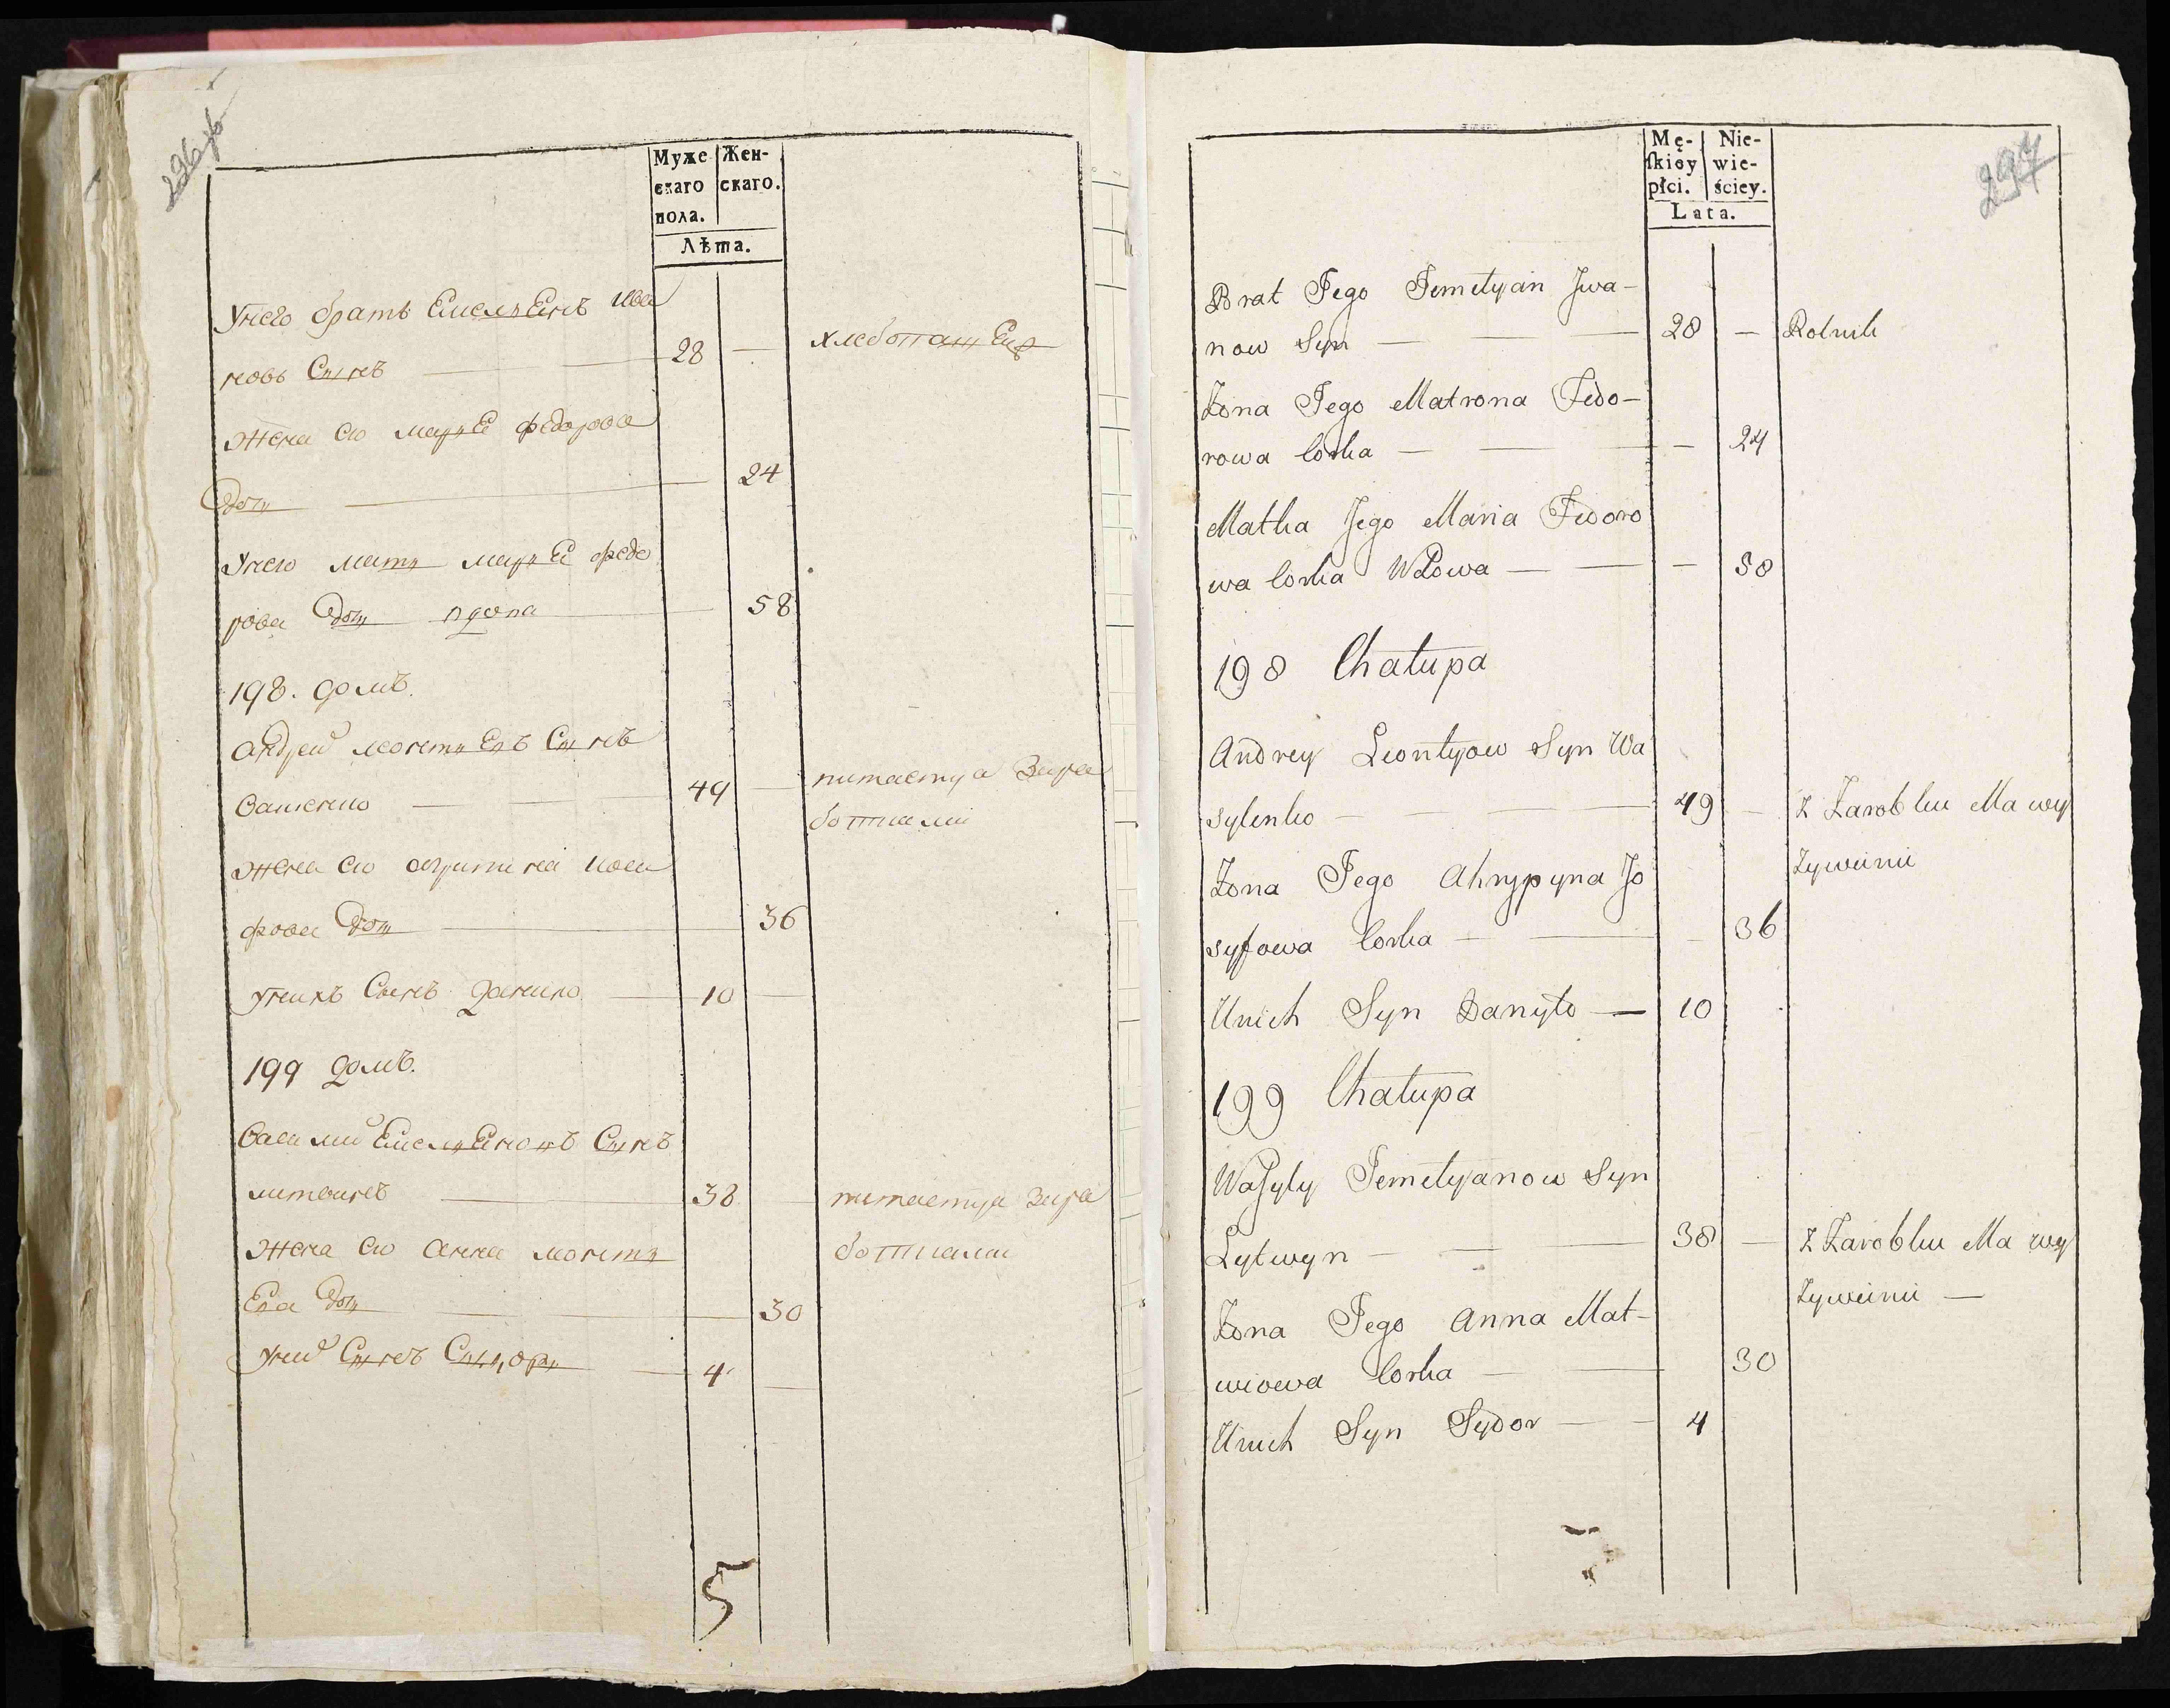 Муже Жен-
скаго скаго.
пола.
Лѣта.
Унего братъ Емельянъ Ива
новъ Сынъ 28 — хлебопашецъ
Жена его Федорова
Дочь 24
Унего мать Марья Федо
рова Дочь вдова 58
198. домъ.
Андрей Сынъ
49 — питаетца Зара
ботками
Жена его Агрипина Иоси
фова Дочь 36
Унихъ Сынъ Данило 10 —
199 домъ.
Василий Емельяновъ Сынъ
литвинъ 38 питаетца Зара
Жена его Анна ботками
Дочь 30
Сынъ Сидоръ 4 —
5
297
Mę- Nie-
skiey wie-
płci. ściey.
Lata.
Brat Jego Jemelyan Jwa-
now Syn — 28 — Rolnik
Zona Jego Matrona Fedo-
rowa Corka — — 24
Matka Jego Maria Fedoro
wa Corka Wdowa — — 58
198 Chałupa
Andrey Leontyow Syn Wa
sylenko — 49 — Z Zarobku Ma wy
Zona Jego Ahrypyna Jo Zywienie
syfowa Corka — — 36
Unich Syn Danyło — 10
199 Chałupa
Wasyly Jemelyanow Syn
Lytwyn — 38 — Z Zarobku Ma wy
Zona Jego Anna Mat- Zywienie —
wiowa Corka — 30
Unich Syn Sydor — 4